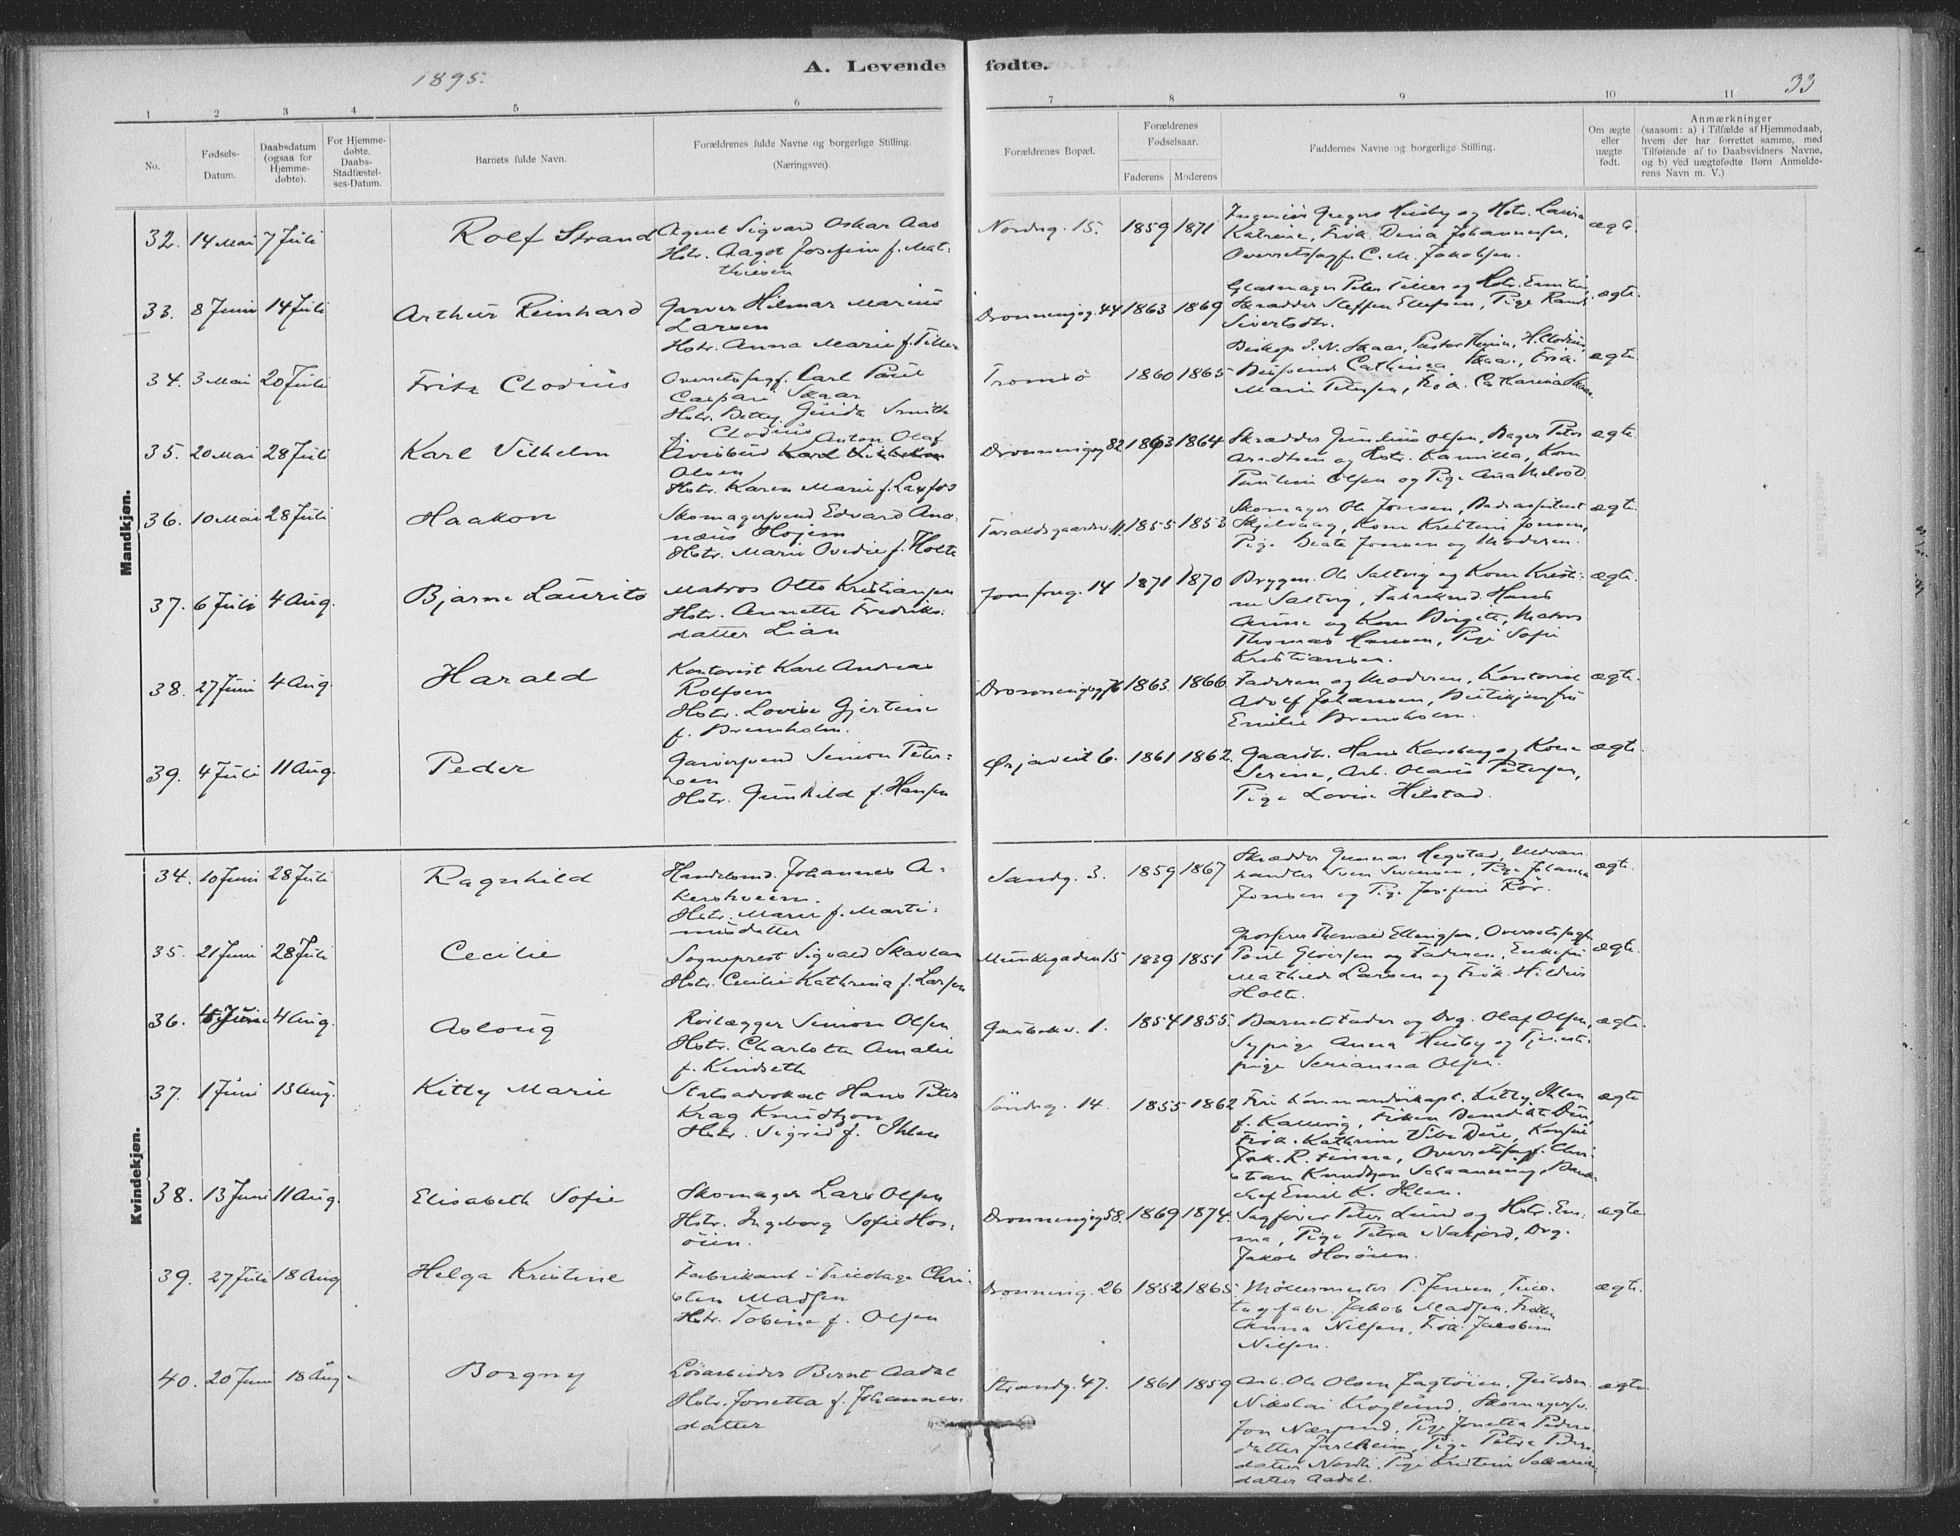 1895.
A. Levende fødte.
33
1 2 3 4 5 6 7 8 9 10 11
No.
Fødsels-Datum.
Daabsdatum (ogsaa for Hjemmedøbte).
For Hjemmedøbte. Daabs-Stadfæstelses-Datum.
Barnets fulde Navn.
Forældrenes fulde Navne og borgerlige Stilling. (Næringsvei).
Forældrenes Bopæl.
Forældrenes Fødselsaar.
Faderens Moderens
Faddernes Navne og borgerlige Stilling.
Om ægte eller uægte født.
Anmærkninger
(saasom: a) i Tilfælde af Hjemmedaab,
hvem der har forrettet samme, med
Tilføiende af to Daabsvidners Navne,
og b) ved uægtefødte Børn Anmelderens Navn m. V.)
Mandkjøn.
32. 14 Mai 7 Juli Rolf Strand Agent Sigvard Oskar Aas
Hstr. Aagot Josefine f. Matthiesen
Nordg. 15. 1859 1871
Ingeniør Gregers Husby og Hstr. Laura
Katrine, Frøk. Dina Johannesen,
Overretssagf. C. M. Jakobsen.
ægte.
33. 8 Juni 14 Juli Arthur Reinhard Garver Hilmar Marius
Larsen
Hstr. Anna Marie f. Tiller
Dronningsg. 44 1863 1869
Glasmager Peter Tiller og Hstr. Emilie,
Skrædder Steffen Ellefsen, Pige Randi
Sivertsdtr.
ægte.
34. 3 Mai 20 Juli Fritz Clodius Overretssagf. Carl Paul
Caspari Skaar
Hstr. Betty Guida Smith
f. Clodius
Tromsø 1860 1865
Biskop J. N. Skaar, Pastor H. Clodius,
Cathinca Skaar, Frøk.
Marie Petersen, Frøk. Catharina Skaar.
ægte
35. 20 Mai 28 Juli Karl Vilhelm Anton Olaf
Olsen
Hstr. Karen Marie f. Laxfos
Dronningsg 82 1863 1864
Skrædder Julius Olsen, Bager Peter
Arndtsen og Hstr. Kamilla, Kone
Pauline Olsen og Pige Ana Melvold.
ægte
36. 10 Mai 28 Juli Haakon Skomagersvend Edvard Ananias Højem
Hstr. Marie Ovedie f. Holte
Taraldsgaardsv. 11. 1855 1853
Skomager Ole Jonsen,
Skjelvaag, Kone Kristine Jonsen,
Pige Beate Jonsen og Moderen.
ægte.
37. 6 Juli 4 Aug. Bjarne Laurits Matros Otto Kristiansen
Hstr. Annette Fredriksdatter Lian
Jomfrug. 14 1871 1870
Bryggm. Ole Saltvig og Kone Kristine Saltvig, Hans
og Kone Birgitte, Matros
Thomas Hansen, Pige Sofie
Kristiansen.
ægte.
38. 27 Juni 4 Aug. Harald Kontorist Karl Andreas
Rolfsen
Hstr. Lovise Gjertine
f. Bremsholm.
Dronningsg 76 1863 1866.
Faderen og Moderen, Kontorist
Adolf Johansen, Butikjomfru
Emilie Bremsholm.
ægte.
39. 4 Juli 11 Aug. Peder Garversvend Simon Petersen
Hstr. Gunhild f. Hansen
Ørjaveit 6. 1861 1862.
Gaardbr. Hans Karlsberg og Kone
Serine, Arb. Olaus Petersen,
Pige Lovise Hilstad.
ægte.
Kvindekjøn.
34. 10 Juni 28 Juli Ragnhild Handelsmd. Johannes Akershveem.
Hstr. Marie f. Martinusdatter
Sandg. 3. 1859 1867
Skrædder Gunnar Hegstad, Uldvarehandler Sven Svensen, Pige Johanna
Jonsen og Pige Josefine Rør.
ægte.
35. 21 Juni 28 Juli Cecilie Sogneprest Sigvald Skavlan
Hstr. Cecilie Kathrina f. Larsen
Munkegaden 15 1839 1851
Thorvald Ellingsen, Overretssagf.
Paul Gløersen og Faderen, Enkefru
Mathilde Larsen og Frøk. Hildur
Holte.
ægte.
36. 5 Juni 4 Aug. Aslaug Rørlægger Simon Olsen
Hstr. Charlotte Amalie
f. Kindseth
Gaubæksv. 1. 1854 1855.
Barnets Fader og Drg. Olaf Olsen,
Sypige Anna Husby og Tjenestpige Serianna Olsen.
ægte.
37. 1 Juni 13 Aug. Kitty Marie Statsadvokat Hans Peter
Krag Knudtzon
Hstr. Sigrid f. Ihlen
Søndreg. 14. 1855 1862
Fru Kommandørkapt. Kitty Ihlen
f. Kallevig, Frøken Benedikte Due,
Frøk. Kathrine Vibe Due, Konsul
Jak. R. Finne, Overretssagf. Christian Knudtzon Schaanning,
chef Emil K. Ihlen.
ægte
38. 13 Juni 11 Aug. Elisabeth Sofie Skomager Lars Olsen
Hstr. Ingeborg Sofie Hosøien.
Dronningsg 58. 1869 1874.
Sagfører Peter Lund og Hstr. Emma, Pige Petra Nakjord, Drg.
Jakob Hosøien.
ægte
39. 27 Juli 18 Aug Helga Kristine Fabrikant i Tricotage Christen Madsen
Hstr. Tobine f. Olsen
Dronning. 26 1852 1865.
Møllermester P. Jensen, Tricotagefabr. Jakob Madsen, Frøken
Anna Nilsen, Frøk. Jakobine
Nilsen.
ægte.
40. 20 Juni 18 Aug. Borgny Løsarbeider Bernt Aadal
Hstr. Jonetta f. Johannesdatter
Strandg. 47. 1861 1859
Arb. Ole Olsen Jagtøien, Guldsm.
Nikolai Kroglund, Skomagersv.
Jon Næssund, Pige Jonetta Pedersdatter Jarlheim, Pige Petra Pedersdatter Nordli, Pige Kristine Sakariasdatter Aadal.
ægte.